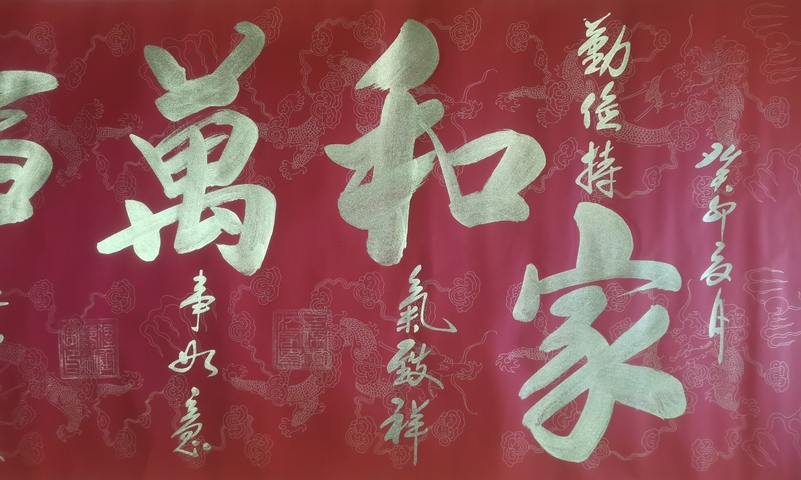 癸卯夏月
勤俭持家
和氣致祥
萬事如意